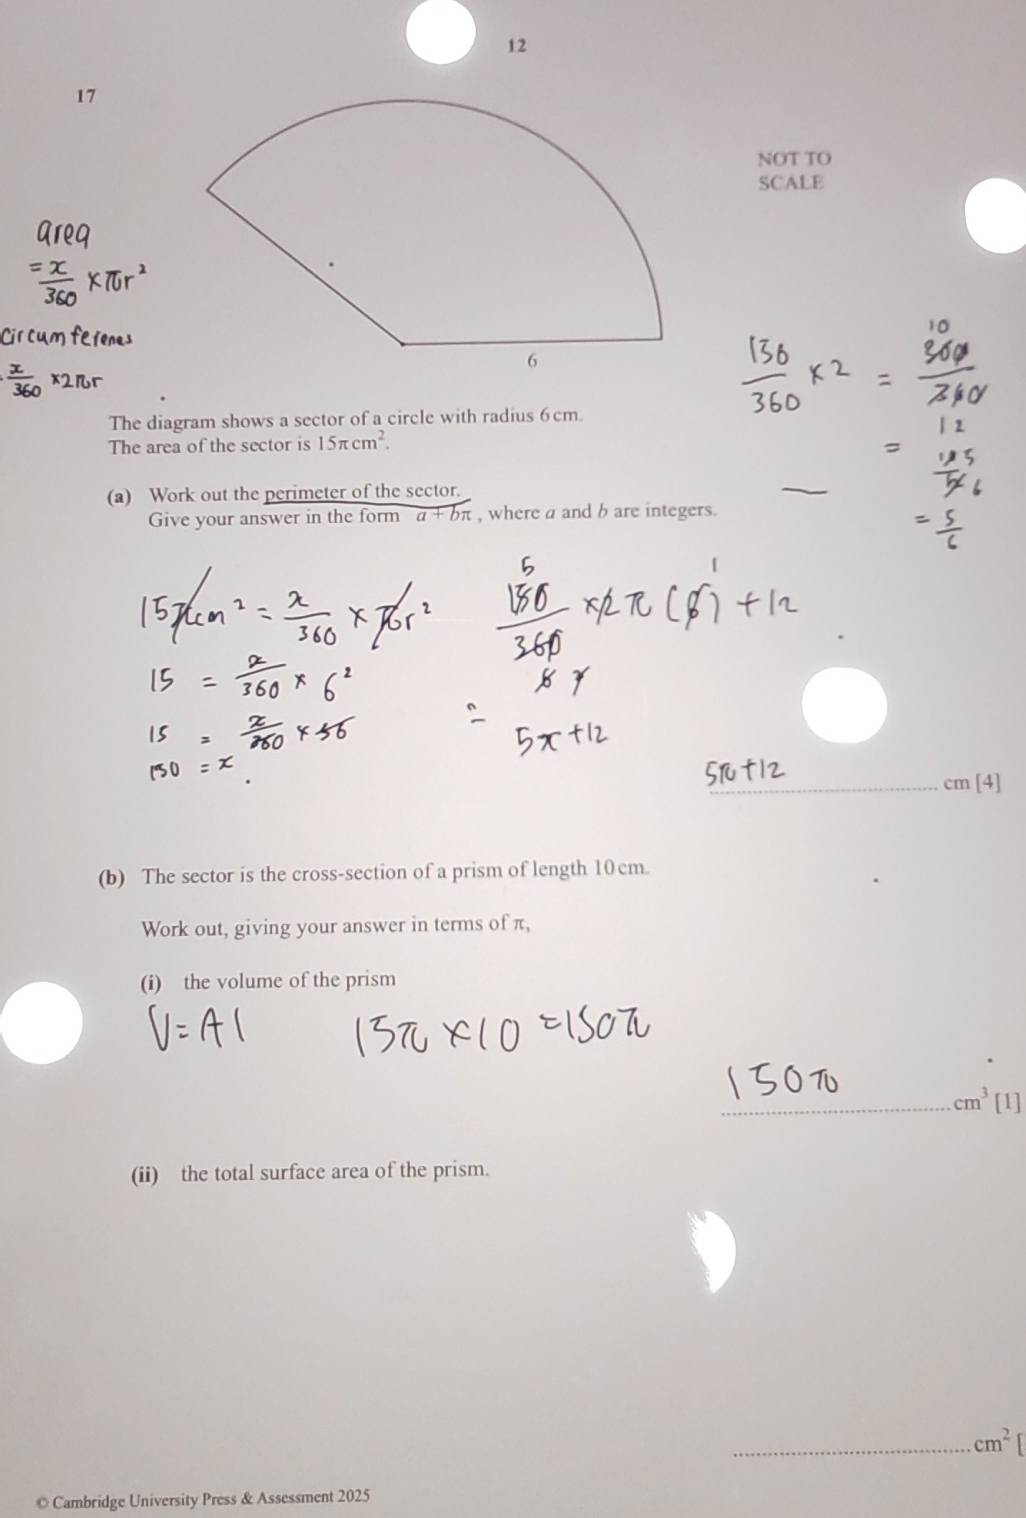 12
17
NOT TO
SCALE
area
= x/360 × πr²
x/360 × 2πr
6
The diagram shows a sector of a circle with radius 6 cm.
The area of the sector is 15π cm².
(a) Work out the perimeter of the sector.
Give your answer in the form a + bπ , where a and b are integers.
= 5/6
15πcm² = x/360 × πr²
15 = x/360 × 6²
15 = x/360 × 36
150 = x
5π+12
5π+12
cm [4]
(b) The sector is the cross-section of a prism of length 10 cm.
Work out, giving your answer in terms of π,
(i) the volume of the prism
V=Al 15π×10=150π
150π
cm³ [1]
(ii) the total surface area of the prism.
cm² [
© Cambridge University Press & Assessment 2025